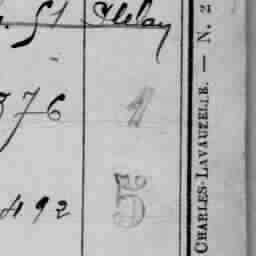 St Helay
376
1
492
5
CHARLES-LAVAUZELLE. — N. 21